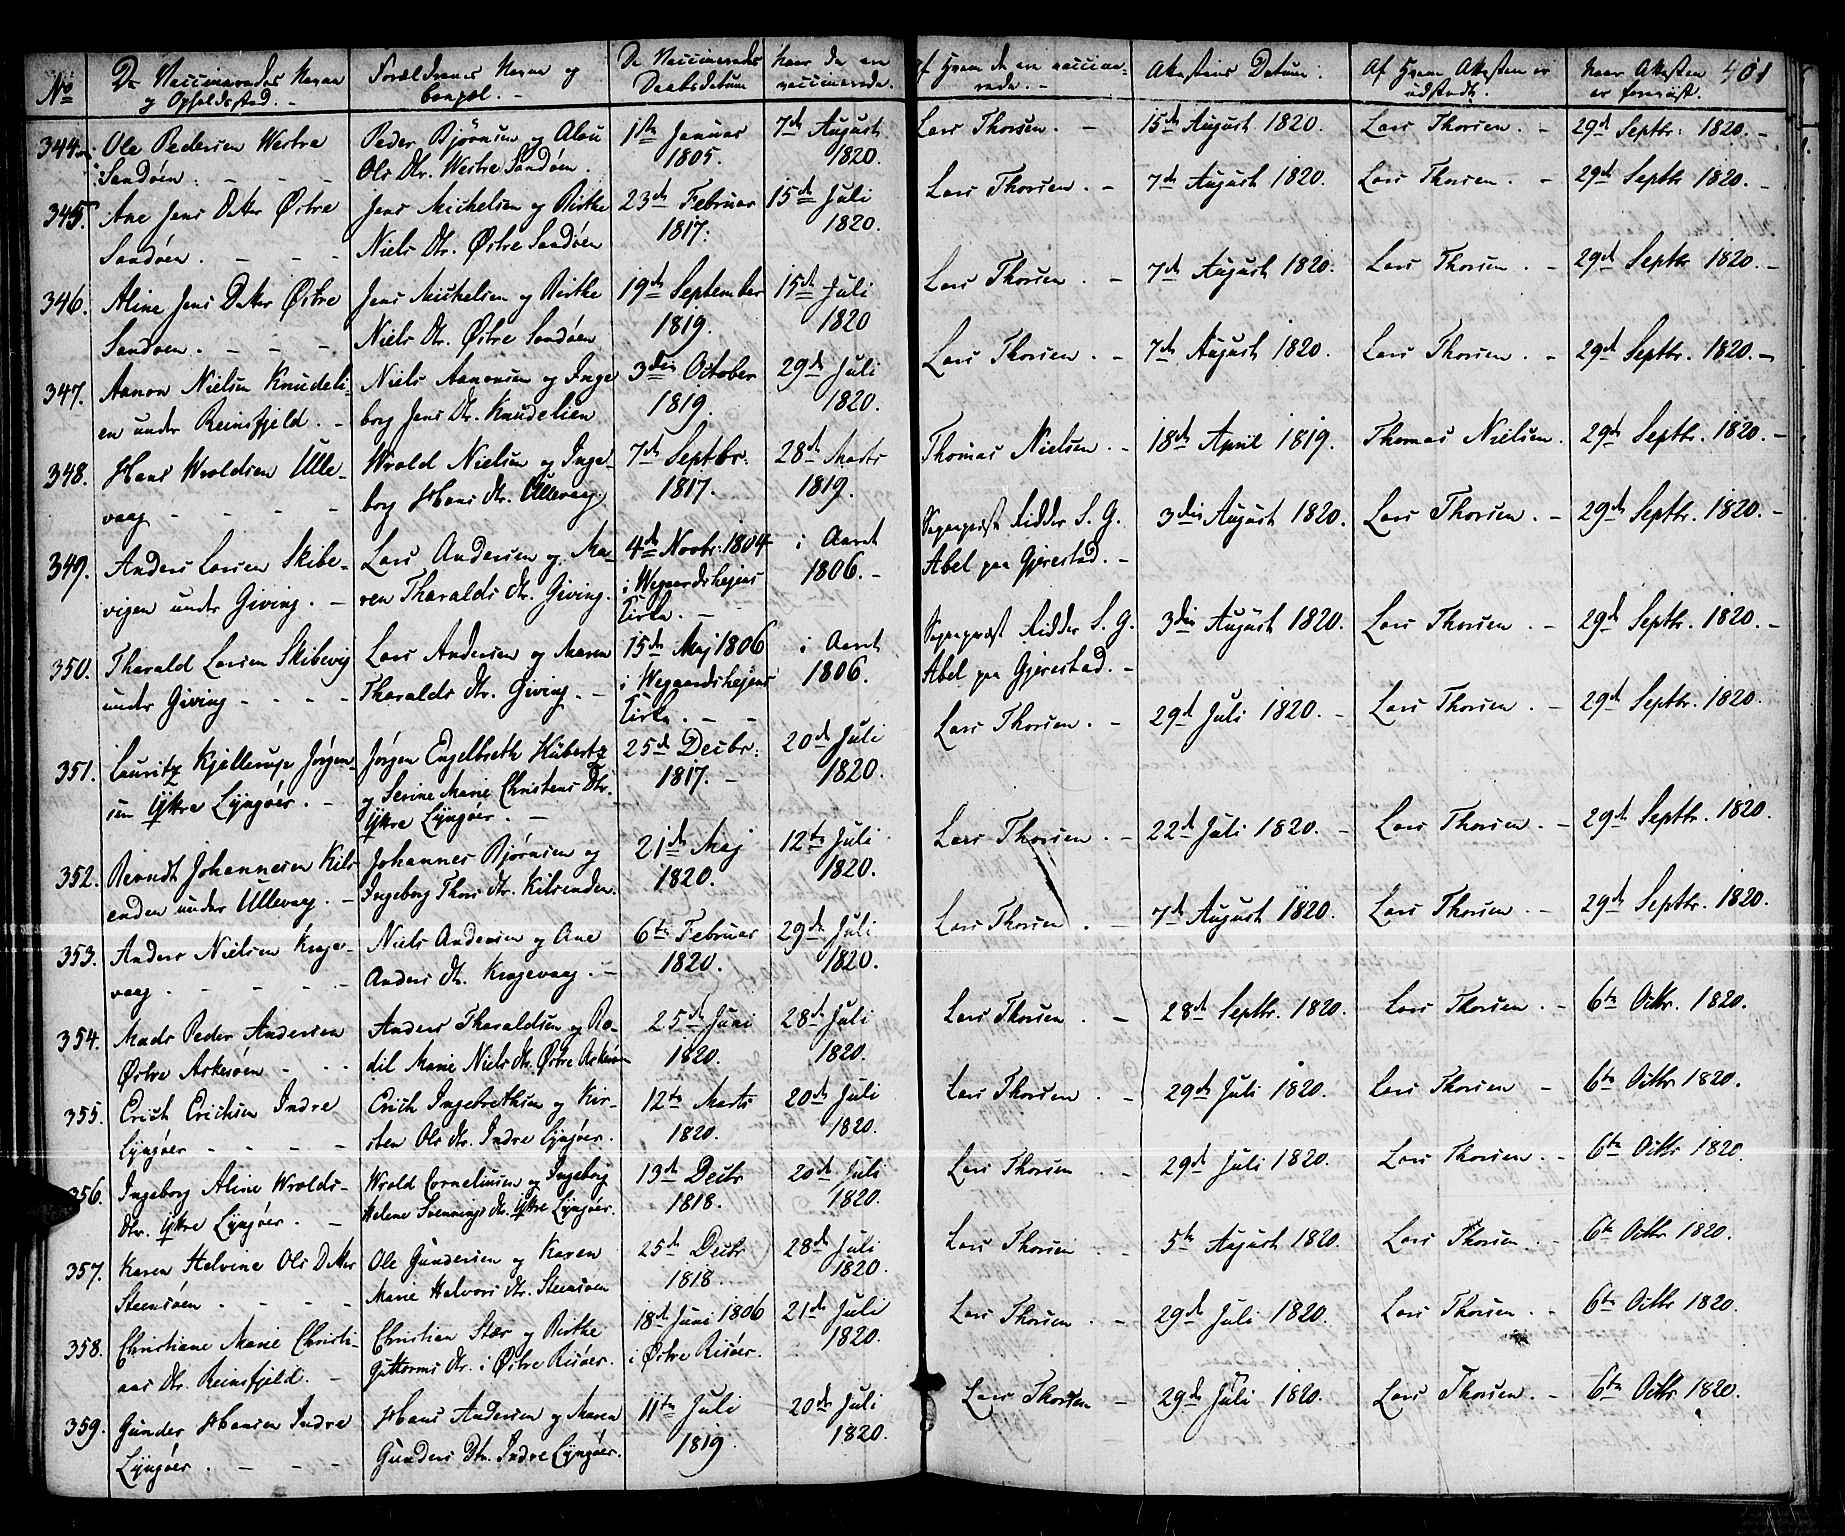 401
No
De Vaccineredes Navne
og Opholdssted.
Forældrenes Navne og
Bopæl.
De Vaccineredes
Daabsdatum
Naar de ere
vaccinerede.
Af Hvem de ere vaccine-
rede.
Attestens Datum.
Af Hvem Attesten er
udstedt.
Naar Attesten
er foreviist.
344. Ole Pedersen Westre
Sandøen.
Peder Bjørnsen og
Ols Dtr. Westre Sandøen.
1ste Januar
1805.
7de August
1820.
Lars Thorsen.
15de August 1820.
Lars Thorsen.
29de Septbr: 1820.
345. Ane Jens Datter Østre
Sandøen.
Jens Michelsen og Birthe
Niels Dtr. Østre Sandøen
23de Februar
1817.
15de Juli
1820.
Lars Thorsen.
7de August 1820.
Lars Thorsen.
29de Septbr 1820.
346. Aline Jens Datter Østre
Sandøen.
Jens Michelsen og Birthe
Niels Dtr. Østre Sandøen
19de September
1819.
15de Juli
1820
Lars Thorsen.
7de August 1820.
Lars Thorsen.
29de Septbr 1820.
347. Aanon Nielsen Knudeli-
en under Reinsfjeld.
Niels Aanonsen og Inge
borg Jens Dtr. Knudelien
3die October
1819.
29de Juli
1820.
Lars Thorsen.
7de August 1820.
Lars Thorsen.
29de Septbr. 1820.
348. Hans Wroldsen Ulle-
vaag
Wrold Nielsen og Inge-
borg Hans Dtr. Ullevaag
7de Septbr.
1817.
28de Marts
1819.
Thomas Nielsen.
18de April 1819.
Thomas Nielsen.
29de Septbr. 1820.
349. Anders Larsen Skibe-
vigen under Giving.
Lars Andersen og Ma-
ren Tharalds Dtr. Giving.
4de Novbr: 1804
i Wegaardsheiens
Kirke.
i Aaret
1806.
Sognepræst Ridder S. G.
Abel paa Gjerestad.
3die August 1820.
Lars Thorsen.
29de Septbr. 1820.
350. Tharald Larsen Skibevig
under Giving
Lars Andersen og Maren
Tharalds Dtr. Giving.
15de Maj 1806
i Wegaardsheiens
Kirke.
i Aaret
1806.
Sognepræst Ridder S. G.
Abel paa Gjerestad.
3die August 1820.
Lars Thorsen.
29de Septbr. 1820.
351. Lauritz Kjellerup Jørgen-
sen Yttre Lyngøer.
Jørgen Engelbreth Hübertz
og Serine Marie Christens Dtr.
Yttre Lyngøer.
25de Decbr.
1817.
20de Juli
1820.
Lars Thorsen.
29de Juli 1820.
Lars Thorsen.
29de Septbr. 1820.
352. Berndt Johannesen Kils-
enden under Ullevaag.
Johannes Bjørnsen og
Ingeborg Thors Dtr. Kilsenden.
21de Maj
1820.
12te Juli
1820.
Lars Thorsen.
22de Juli 1820.
Lars Thorsen.
29de Septbr. 1820.
353. Anders Nielsen Krage-
vaag.
Niels Andersen og Ane
Anders Dtr. Kragevaag.
6te Februar
1820.
29de Juli
1820.
Lars Thorsen.
7de August 1820.
Lars Thorsen.
29de Septbr. 1820.
354. Mads Peder Andersen
Østre Askerøen
Anders Tharaldsen og Bo-
dil Marie Niels Dtr. Østre Askerøen
25de Juni
1820.
28de Juli
1820.
Lars Thorsen.
28de Septbr. 1820.
Lars Thorsen.
6te Octbr. 1820.
355. Erich Erichsen Indre
Lyngøer
Erich Ingebrethsen og Kir-
sten Ols Dtr. Indre Lyngøer.
12te Marts
1820.
20de Juli
1820.
Lars Thorsen.
29de Juli 1820.
Lars Thorsen
6te Octbr 1820.
356. Ingeborg Aline Wrolds-
Dtr. Yttre Lyngøer.
Wrold Corneliusen og Ingeborg
Helene Svennings Dtr. Yttre Lyngøer.
13de Decbr
1818.
20de Juli
1820.
Lars Thorsen
29de Juli 1820.
Lars Thorsen.
6te Octbr 1820.
357. Karen Helvine Ols Datter
Steensøen.
Ole Gundersen og Karen
Marie Halvors Dtr. Steensøen
25de Decbr
1818.
28de Juli
1820.
Lars Thorsen.
5te August 1820.
Lars Thorsen.
6te Octbr 1820.
358. Christiane Marie Christi-
ans Dtr. Reinsfjeld.
Christian Stær og Birthe
Guttorms Dtr. i Østre Risøer.
18de Juni 1806
i Østre Risøer.
21de Juli
1820.
Lars Thorsen.
29de Juli 1820.
Lars Thorsen.
6te Octbr 1820.
359. Gunder Hansen Indre
Lyngøer.
Hans Andersen og Maren
Gunders Dtr. Indre Lyngøer.
11te Juli
1819.
20de Juli
1820.
Lars Thorsen
29de Juli 1820.
Lars Thorsen.
6te Octbr 1820.